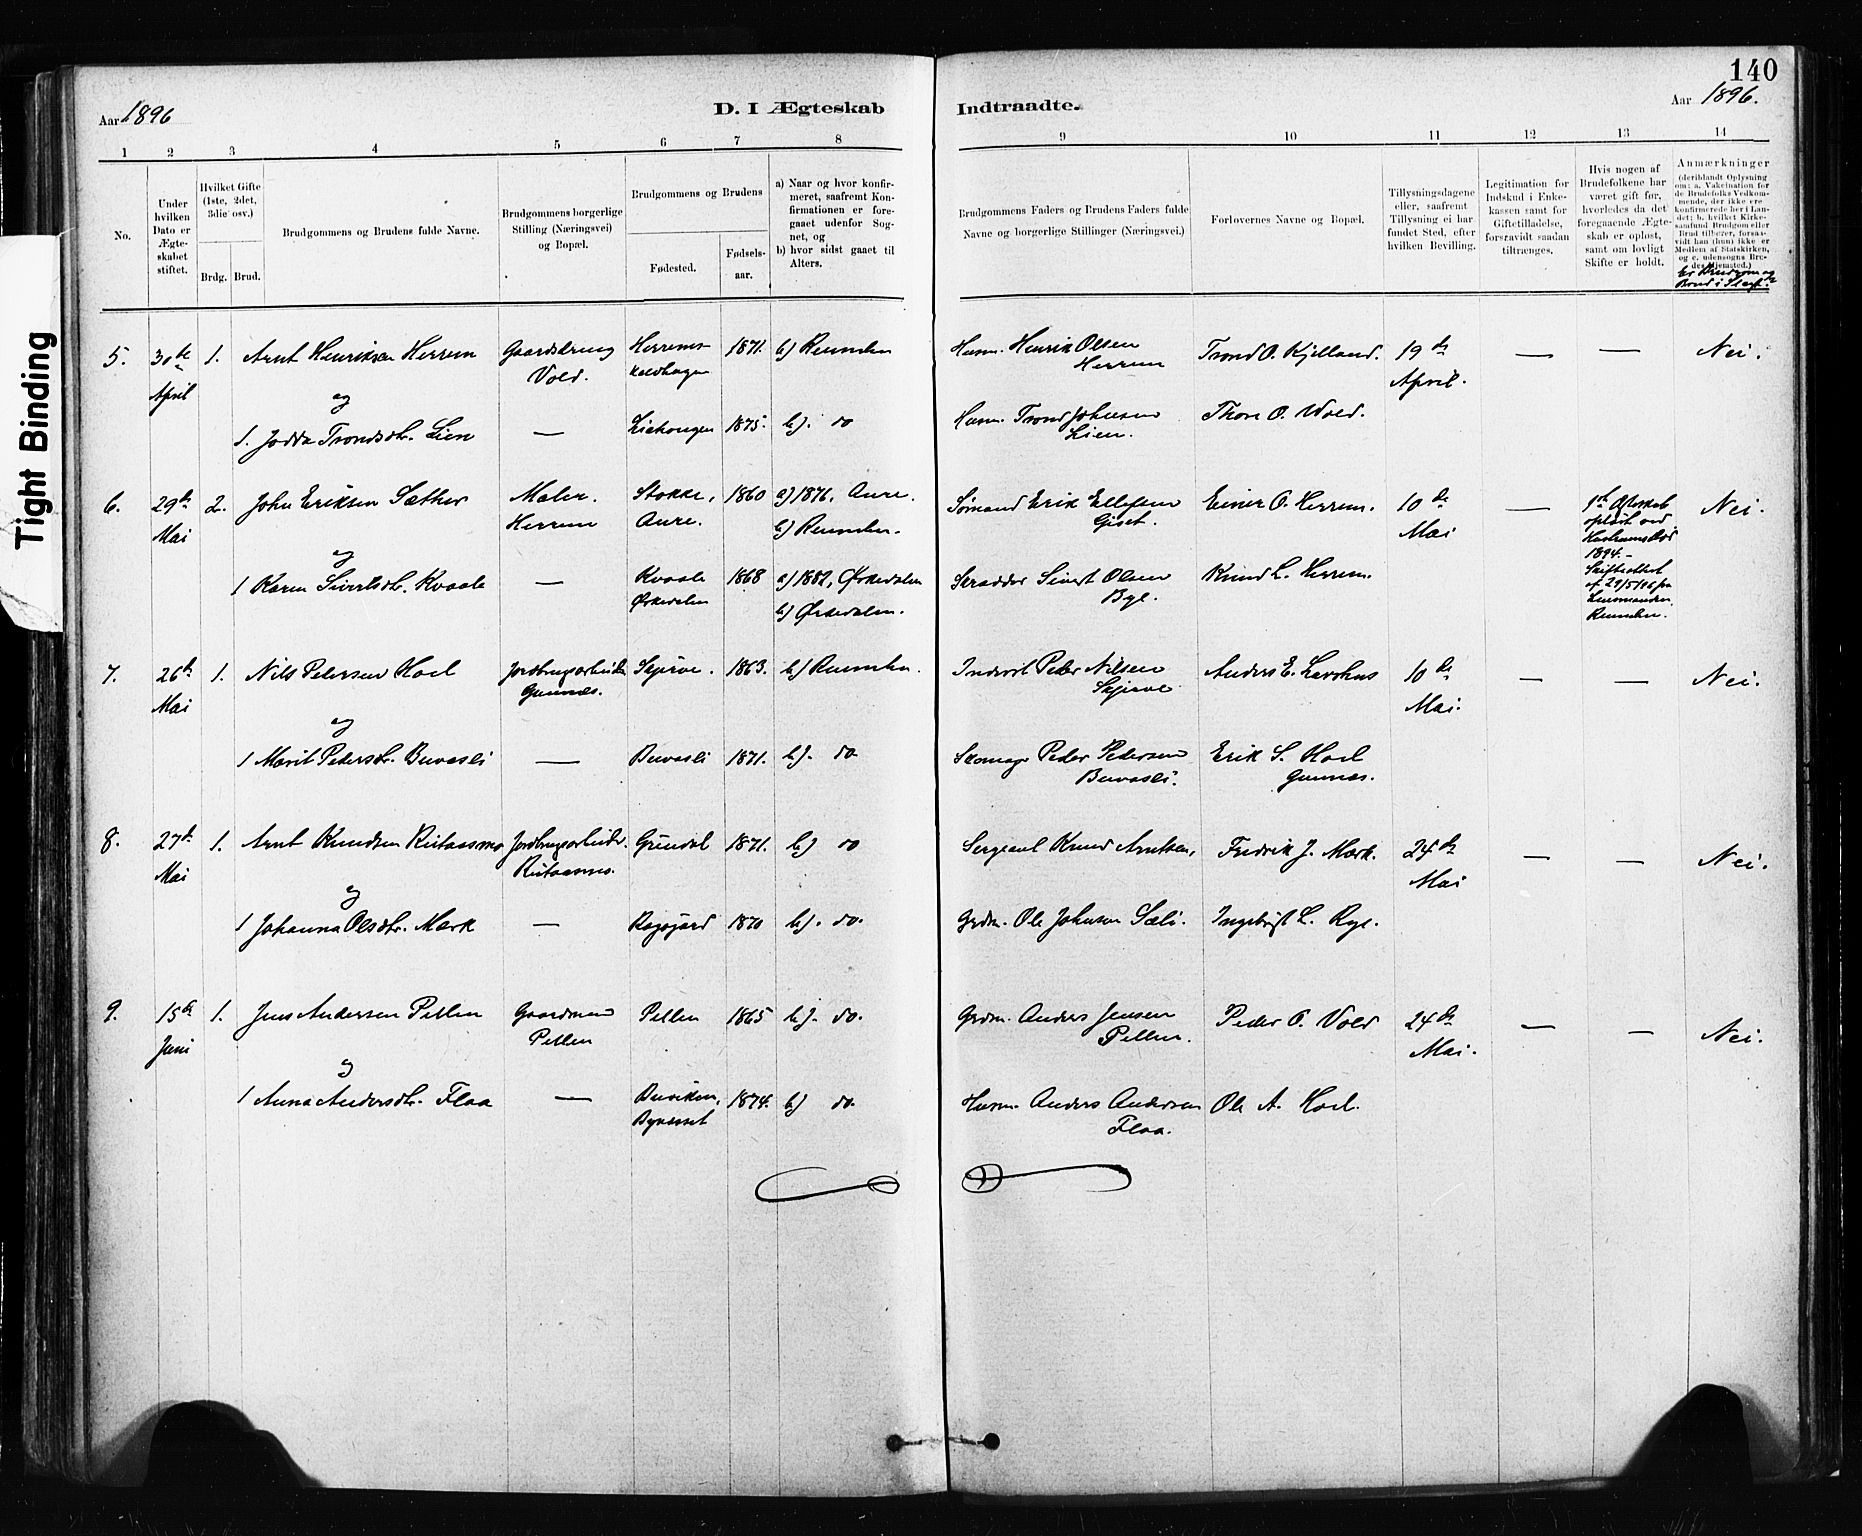 140
Aar 1896
D. I Ægteskab
Indtraadte.
Aar 1896.
1 2 3 4 5 6 7 8
9 10 11 12 13 14
No.
Under hvilken Dato er Ægteskabet stiftet.
Hvilket Gifte (1ste, 2det, 3die osv.)
Brdg. Brud.
Brudgommens og Brudens fulde Navne.
Brudgommens borgerlige Stilling (Næringsvei) og Bopæl.
Brudgommens og Brudens
Fødested.
Fødselsaar.
a) Naar og hvor konfirmeret, saafremt Konfirmationen er foregaaet udenfor Sognet, og
b) hvor sidst gaaet til Alters.
Brudgommens Faders og Brudens Faders fulde Navne og borgerlige Stillinger (Næringsvei.)
Forlovernes Navne og Bopæl.
Tillysningsdagene eller, saafremt Tillysning ei har fundet Sted, efter hvilken Bevilling.
Legitimation for Indskud i Enkekassen samt for Giftetilladelse, forsaavidt saadan tiltrænges.
Hvis nogen af Brudefolkene har været gift før, hvorledes da det foregaaende Ægteskab er opløst, samt om lovligt Skifte er holdt.
Anmærkninger
(deriblandt Oplysning om: a. Vakcination for de Brudefolks Vedkommende, der ikke ere konfirmerede her i Landet; b. hvilket Kirkesamfund Brudgom eller Brud tilhører, forsaavidt han (hun) ikke er Medlem af Statskirken, og c. udensogns Brudes Hjemsted.)
Er Brudgom og Brud i Slægt?
Tight Binding
5. 30te April 1. Arnt Henriksen Herrem Gaardsdreng Vold. Herrems 1871. b) Rennebu
Husm. Henrik Olsen Herrem Trond O. Kjelland. 19de April. — — Nei.
og
1. Trondsdtr. Lien — 1875. b). do
Husm. Trond Johnsen Lien. Thore O. Vold.
6. 29de Mai 2. John Eriksen Sæther Maler. Herrem Stokke, Aure. 1860 a) 1876, Aure. b) Rennebu.
Sømand Erik Ellefsen Giset. Einer O. Herrem. 10de Mai — 1ste opløst ved 1894. — Nei.
og
1 Karen Sivertsdtr. Kvaale — Kvaale Ørkedalen 1868 a) 1882, Ørkedalen b) Ørkedalen.
Skrædder Sivert Olsen Bye. Knud L. Herrem.
Lensmanden, Rennebu.
7. 26de Mai 1. Nils Pedersen Hoel Jordbrugsarbeider Gunnes. Skjerve. 1863. b) Rennebu.
Inderst Peder Nilsen Skjerve Anders E. Levshus 10de Mai. — — Nei.
og
1 Marit Pedersdtr. Buvasli — Buvasli 1871. b). do
Skomag. Peder Pedersen Buvasli. Erik S. Hoel Gunnes.
8. 27de Mai 1. Arnt Knudsen Rutaasmo Jordbrugsarbeider. Grindal 1871. b) do
Sergeant Knud Arntsen, Fredrik J. Mærk. 24de Mai — — Nei.
og
1 Johanna Olsdtr. Mærk — 1870 b). do.
Grdm. Ole Johnsen Sæli. Ingebrigt L. Rye.
9. 15de Juni 1. Jens Andersen Pellen Gaardmand Pellen Pellen 1865 b). do.
Grdm. Anders Jensen Pellen. Peder O. Vold 24de Mai. — — Nei.
og
1 Anna Andersdtr. Flaa — Buviken, Bynesset 1874. b) do.
Husm. Anders Andersen Flaa. Ole A. Hoel.